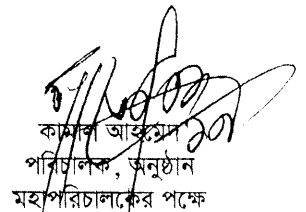 কামাল আহমেদ
পরিচালক, অনুষ্ঠান
মহাপরিচালকের পক্ষে